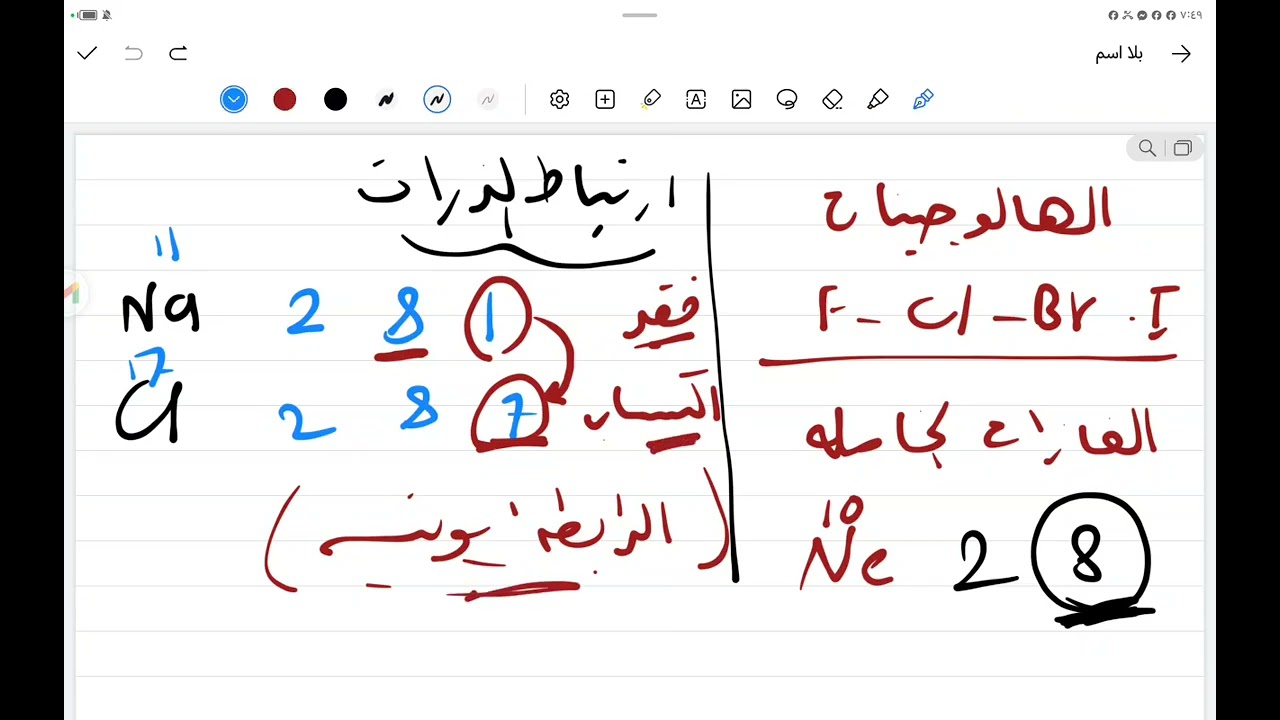 ٧:٤٩
بلا اسم
ارتباط الذرات
الهالوجينات
F - Cl - Br - I
الغازات خاملة
10
Ne 2 8
11
Na 2 8 1 فقد
17
Cl 2 8 7 اكتساب
(الرابطة أيونية)